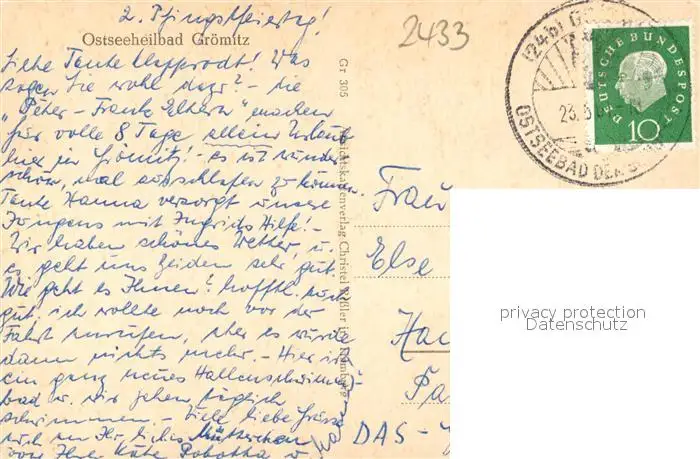 2. Pfingstfeiertag!
Ostseeheilbad Grömitz
2433
Liebe Tante Klapprodt! Was
sagen Sie wohl dazu? - die
"Peter-Frank Eltern" machen
für volle 8 Tage allein Urlaub
hier in Grömitz! - es ist wunder
schön, mal ausschlafen zu können.
Tante Hanna versorgt unsere
Jungens mit Ingrids Hilfe! -
Wir haben schönes Wetter, u.
es geht uns beiden sehr gut.
Wie geht es Ihnen? hofftl.
gut. ich wollte noch vor der
Fahrt anrufen, aber es wurde
dann nichts mehr. - Hier ist
ein ganz neues Hallenschwimm-
bad u. wir gehen täglich
schwimmen. - Viele liebe Grüsse
auch an Ihr liebes Mütterchen
von Ihrer Käte u.
Gr 305
Ansichtskartenverlag Christel
Frau
Else
Ha
DAS-
(24b)
23.5.
OSTSEEBAD DER
DEUTSCHE BUNDESPOST
10
privacy protection
Datenschutz